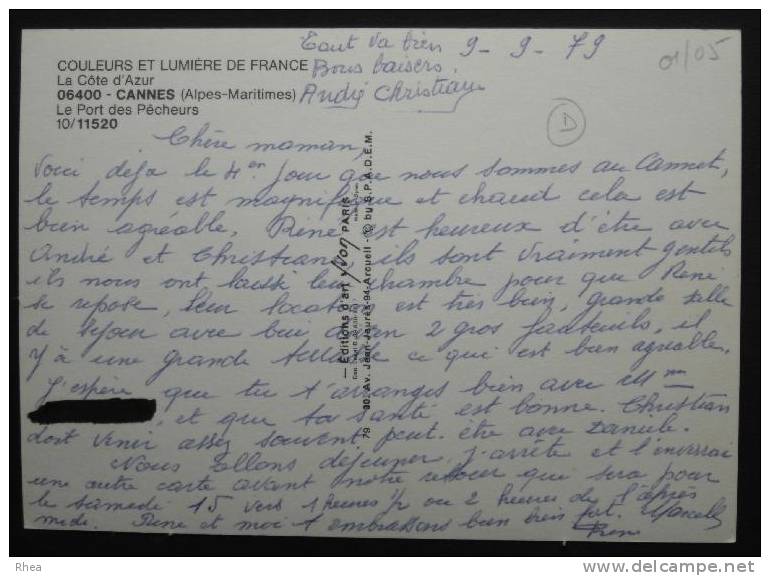 COULEURS ET LUMIÈRE DE FRANCE
La Côte d'Azur
06400 - CANNES (Alpes-Maritimes)
Le Port des Pêcheurs
10/11520
Tout va bien 9-9-79
Bons baisers.
André Christiane
01/05
Chère maman,
Voici déjà le 4en jour que nous sommes au Cannet,
le temps est magnifique et chaud cela est
bien agréable, René est heureux d'être avec
André et Christiane ils sont vraiment gentils
ils nous ont laissé leur chambre pour que René
se repose, leur location est très bien, grande salle
de séjour avec 2 gros fauteuils, il
y à une grande ce qui est bien agréable,
J'espère que tu t'arranges bien avec Mme
, et que ta santé est bonne. Christian
doit venir assez souvent, peut être avec Danièle.
Nous allons déjeuner, j'arrête et t'enverrai
une autre carte avant notre retour qui sera pour
le samedi 15 vers 1 heures 1/2 ou 2 heures de l'après
midi. René et moi t'embrassons bien très fort. Marcelle
René
— Éditions d'art YVON PARIS
79 30, Av. Jean-Jaurès-94-Arcueil - © by S.P.A.D.E.M.
Rhea
delcampe.net